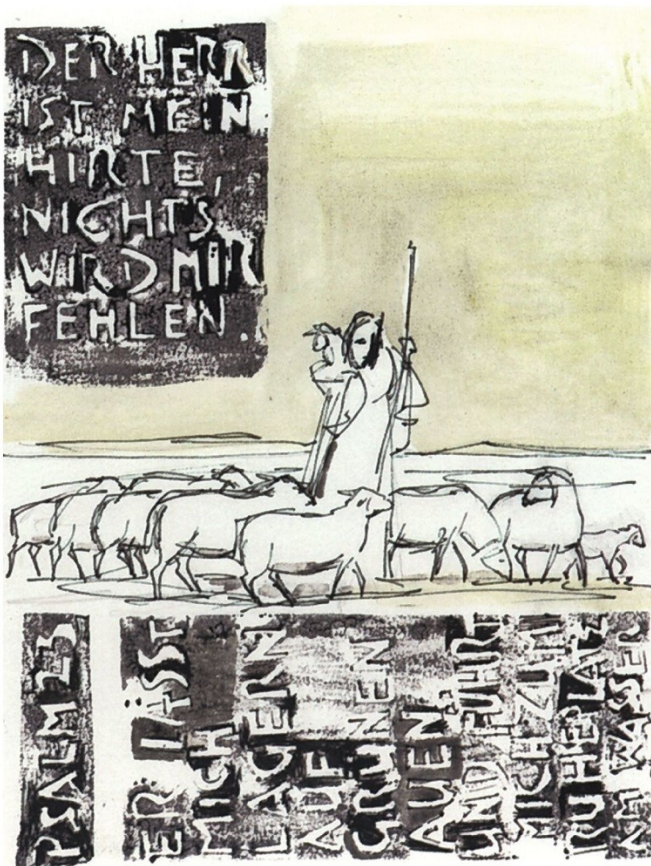 DER HERR
IST MEIN
HIRTE,
NICHTS
WIRD MIR
FEHLEN.
PSALM 23
ER LÄSST
MICH
LAGERN
AUF
GRÜNEN
AUEN
UND FÜHRT
MICH ZUM
RUHEPLATZ
AM WASSER